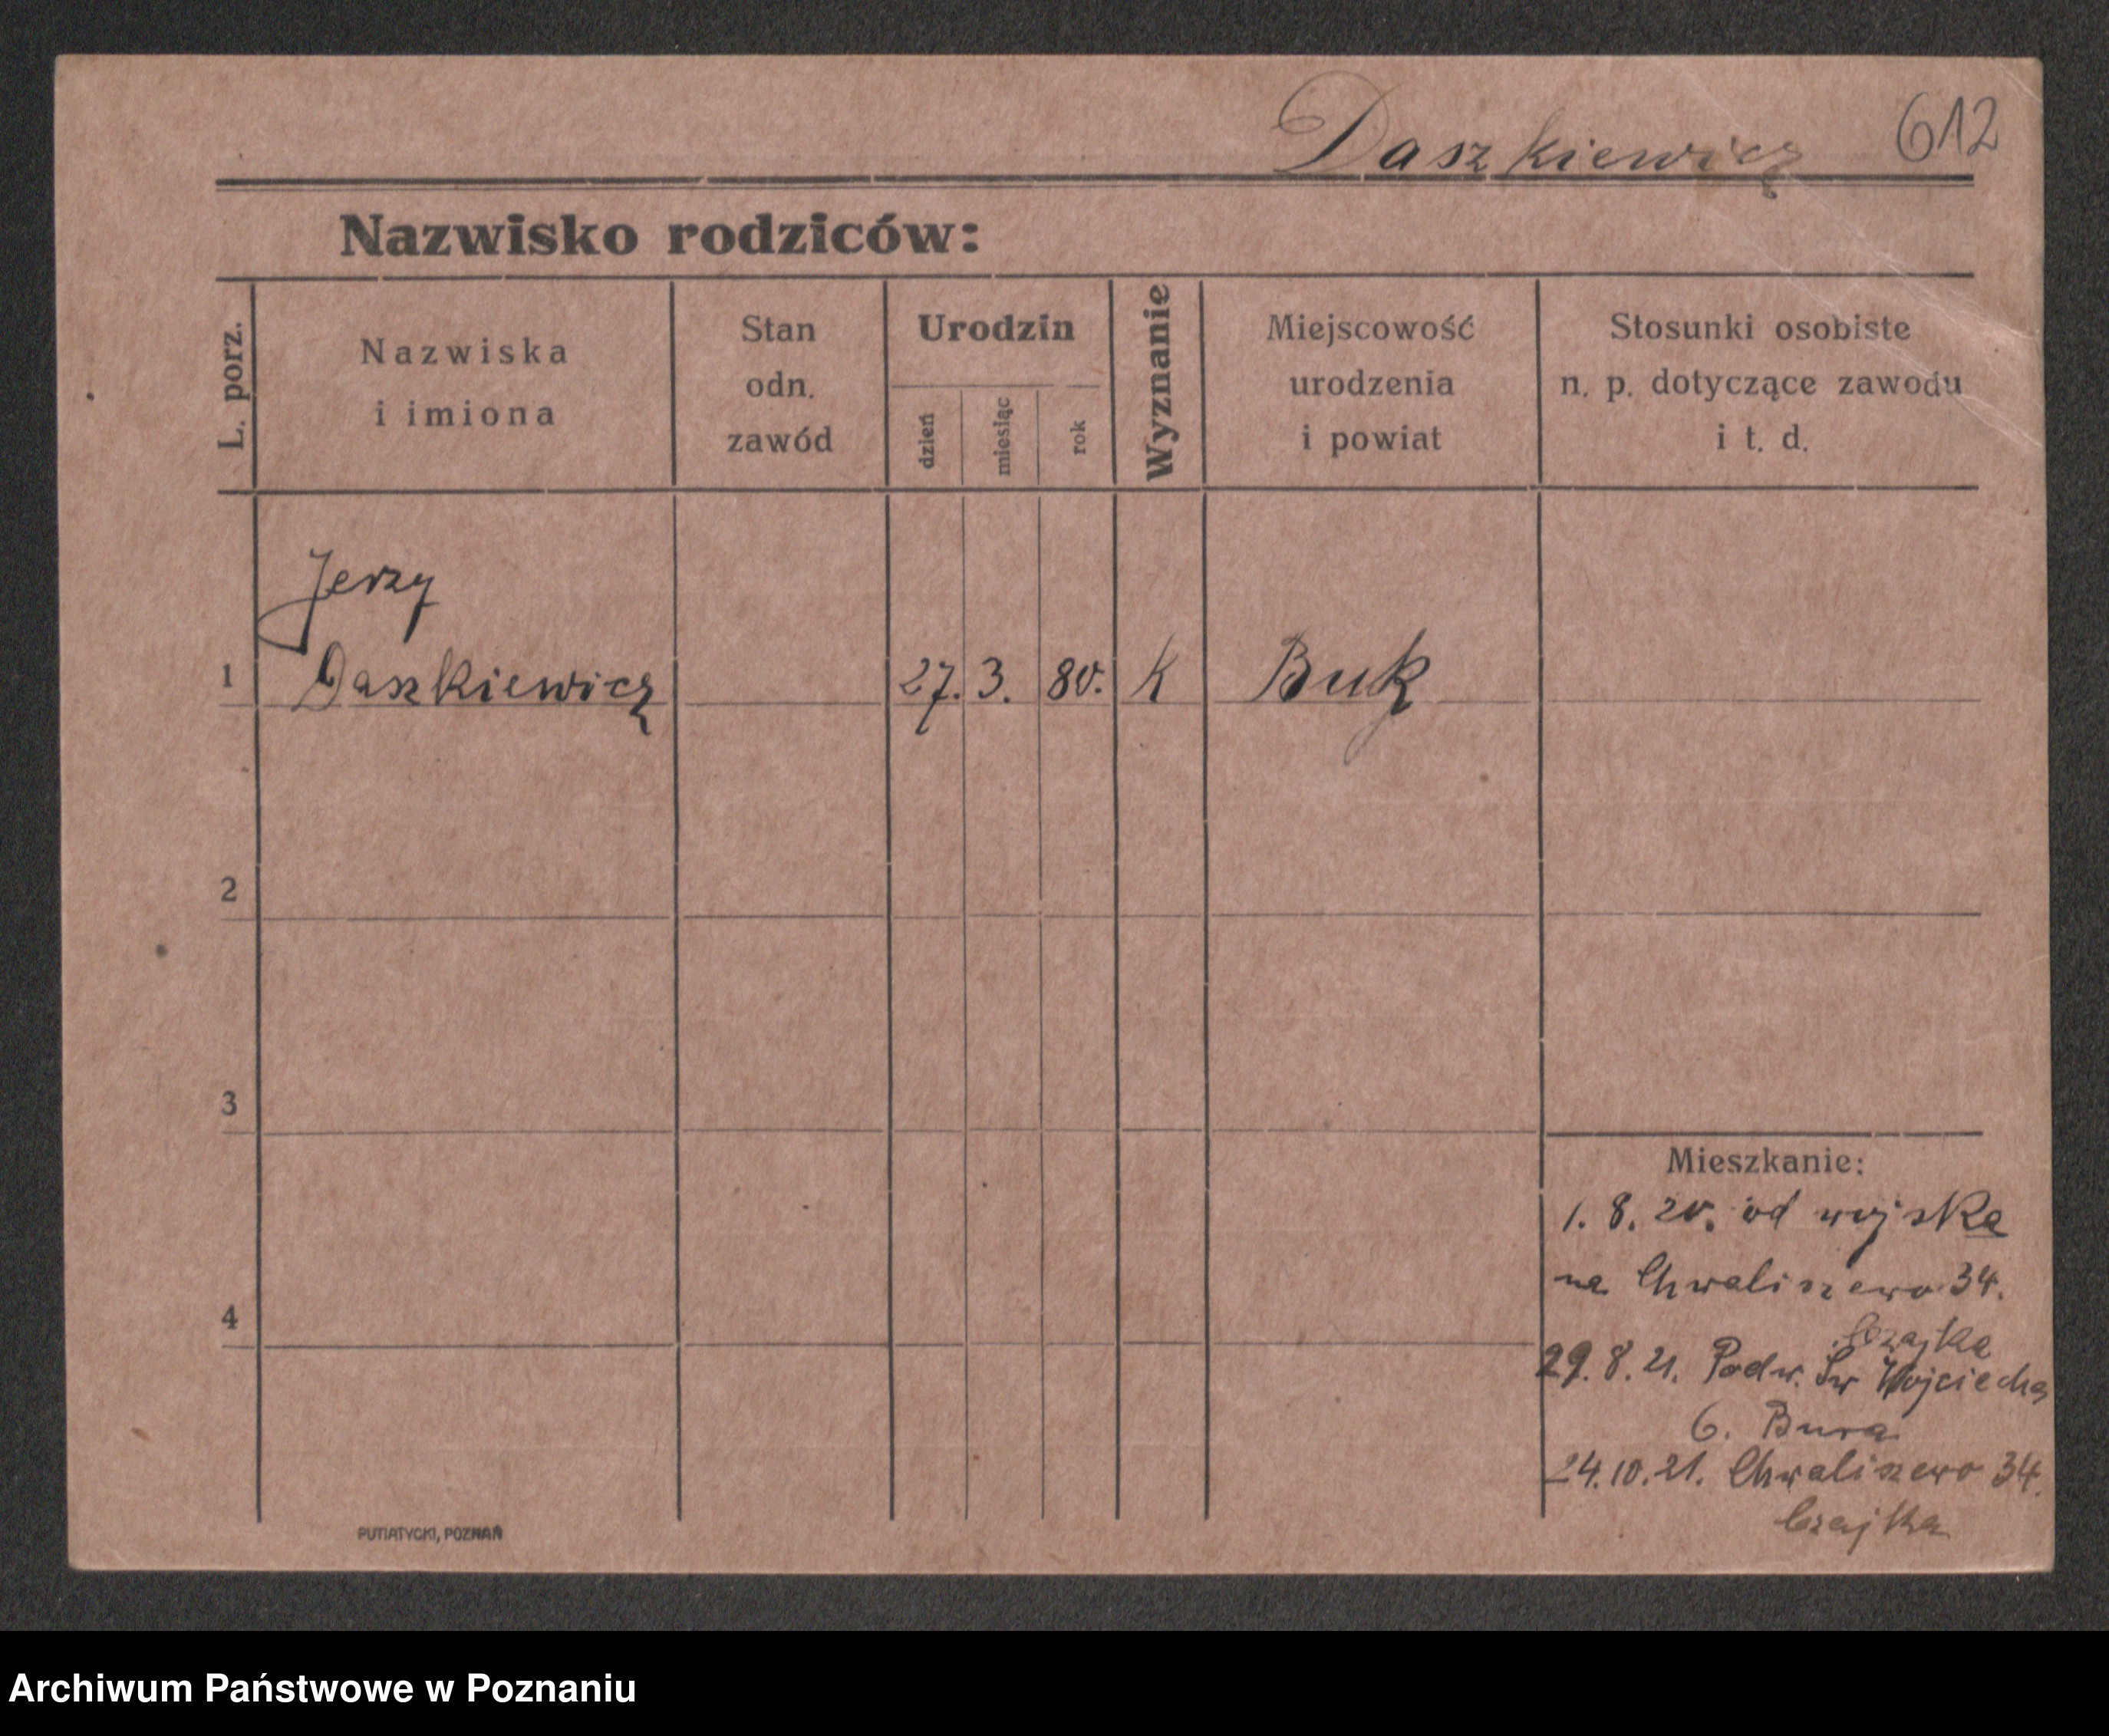 Daszkiewicz 612
Nazwisko rodziców:
L. porz.
Nazwiska
i imiona
Stan
odn.
zawód
Urodzin
dzień
miesiąc
rok
Wyznanie
Miejscowość
urodzenia
i powiat
Stosunki osobiste
n. p. dotyczące zawodu
i t. d.
Jerzy
1 Daszkiewicz 27. 3. 80. k Buk
2
3
4
Mieszkanie:
1. 8. 20. od wojska
na Chwaliszewo 34.
Czajka
29. 8. 21. Podw. Św Wojciecha
6. Bura
24. 10. 21. Chwaliszewo 34.
Czajka
PUTIATYCKI, POZNAŃ
Archiwum Państwowe w Poznaniu